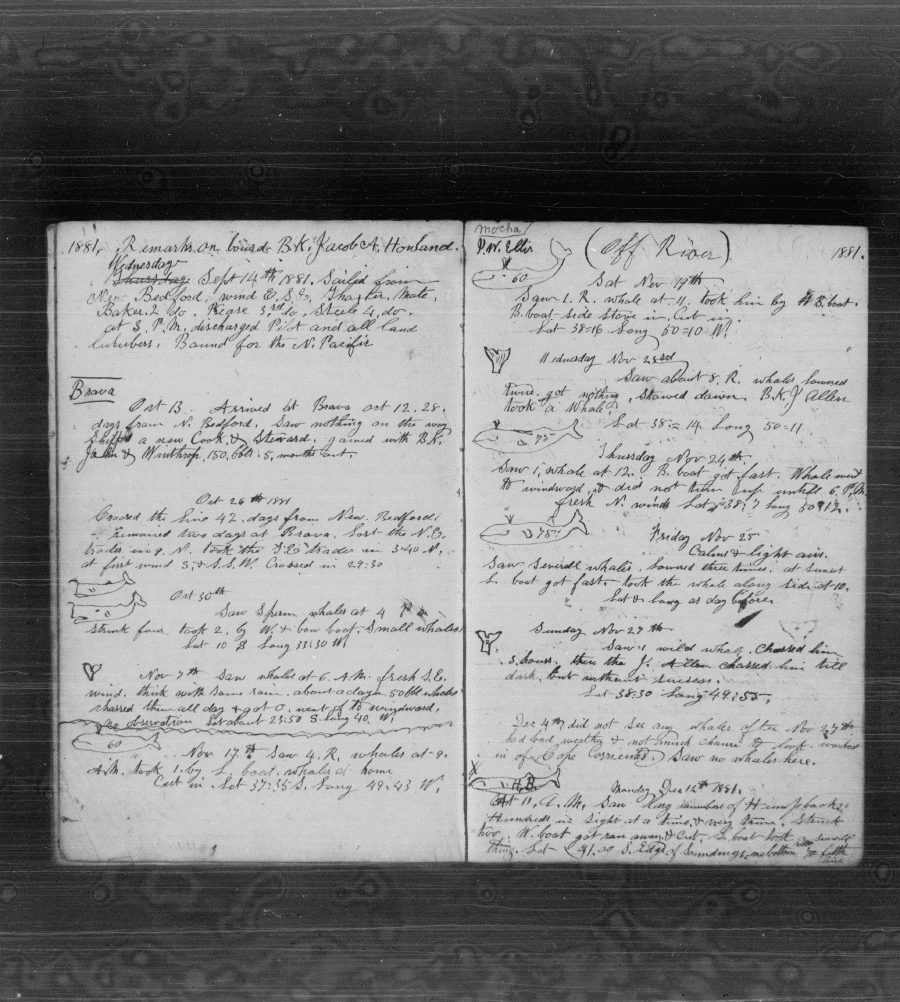 1881, Remarks on board B.K. Jacob A. Howland.
Wednesday
Thursday Sept 14th 1881. Sailed from
New Bedford, wind E.S.E, Thaxter, Mate,
Baker. 2 do. Pease 3rd do, Steele 4, do.
at 3, P.M. discharged Pilot and all land
lumbers, Bound for the N. Pacific
Brava
Oct 13. Arrived at Brava oct 12. 28.
days from N. Bedford, Saw nothing on the way
Shipt a new Cook, & Steward. gamed with B.K.
& Winthrop, 150, bbl. 5, months out.
Oct 26th 1881
Crossed the Line 42. days from New. Bedford.
remained two days at Brava, lost the N.E.
trades in 9. N. took the S.E trades in 3-40 N.
at first wind S, & S.S.W. Crossed in 29:30
Oct 30th
Saw Sperm whales at 4 P.M.
struck four took 2. by W. & bow boat. Small whales
Lat 10 S Long 33:30 W.
Nov 7th saw whales at 6. A.M. fresh S.E.
wind. thick with some rain. about a dozen 50 bbl whales
chased them all day & got 0. went of to windward,
no observation Lat about 23:50 S. Long 40. W.
60
Nov 17th Saw 4. R, whales at 9.
A.M. took 1. by L boat. whales home
Cut in. Lat 37:35 S. Long 49:43 W.
mocha
P.W. Ellis
(Off River)
1881.
60
Sat Nov 19th
Saw 1. R. whale at 11. took him by W B. boat.
B. boat side stove in. Cut in.
Lat 38=16 Long 50=10 W.
Wednesday Nov 23rd
Saw about 8. R. whales lowered
twice. got nothing, Stowed down. B.K. J Allen
took a Whale.
Lat 38:= 14 Long 50=11
75
Thursday Nov 24th
Saw 1, whale at 12. B. boat got fast. Whale went
to windward, & did not turn up untill 6. P.M.
fresh N. winds Lat 38:17 Long 50:12.
75
Friday Nov 25
Calms & light airs.
Saw severall whales. Lowered three times. at sunset
L. boat got fast. took the whale along side at 10,
Lat & Long as day before
Sunday Nov 27th
Saw 1 wild whale, Chased him
5. hours. then the J. Allen chased him till
dark, but without sucsess.
Lat 38:30 Long 49:55.
Dec 4th did not see any whales after Nov 27th
had bad weather & not much chance to look. worked
in of Cape Corrientes, Saw no whales here.
H.B.
Monday Dec 12th 1881.
At 11, A.M, Saw long number of Hump backs.
Hundreds in sight at a time, & very tame. Struck
two. W. boat got ran away & Cut. L boat took
thing. Lat 41.00 S. Edge of Soundings, no bottom 70 fath